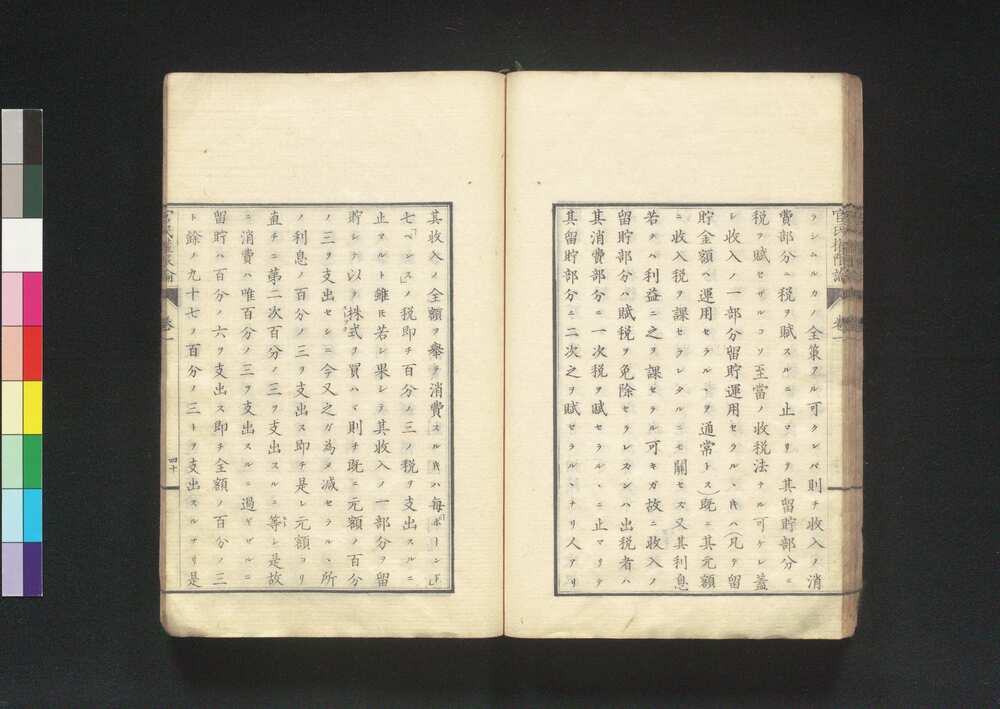 ラシムルカノ全策アル可クンバ則チ收入ノ消
費部分ニ税ヲ賦スルニ止マリテ其留貯部分ニ
税ヲ賦セザルコソ至當ノ收税法ナル可ケレ蓋
シ收入ノ一部分留貯運用セラルヽ𪜈ハ(凡テ留
貯金額ハ運用セラルヽヲ通常トス)既ニ其元額
ニ收入税ヲ課セラレタルニモ關セズ又其利息
若クハ利益ニ之ヲ課セラル可キガ故ニ收入ノ
留貯部分ハ賦税ヲ免除セラレズンハ出税者ハ
其消費部分ニ一次税ヲ賦セラルヽニ止マリテ
其留貯部分ニ二次之ヲ賦セラルヽナリ人アリ
其收入ノ全額ヲ擧テ消費スル𪜈ハ毎「ポーンド」
七「ペンス」ノ税即チ百分ノ三ノ税ヲ支出スルニ
止マルト雖𪜈若シ果シテ其收入ノ一部分ヲ留
貯シテ以テ株式ヲ買ハヾ則チ既ニ元額ノ百分
ノ三ヲ支出セシニ今又之ガ為メ減セラルヽ所
ノ利息ノ百分ノ三ヲ支出ス即チ是レ元額ヨリ
直チニ第二次百分ノ三ヲ支出スルニ等シ是故
ニ消費ハ唯百分ノ三ヲ支出スルニ過ギザルニ
留貯ハ百分ノ六ヲ支出ス即チ全額ノ百分ノ三
ト餘ノ九十七ノ百分ノ三トヲ支出スルナリ是
卷一
四十